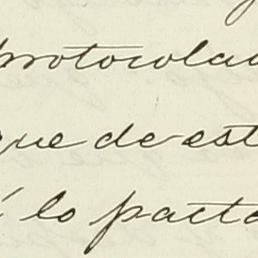 protocolad
que de est
í lo pacta